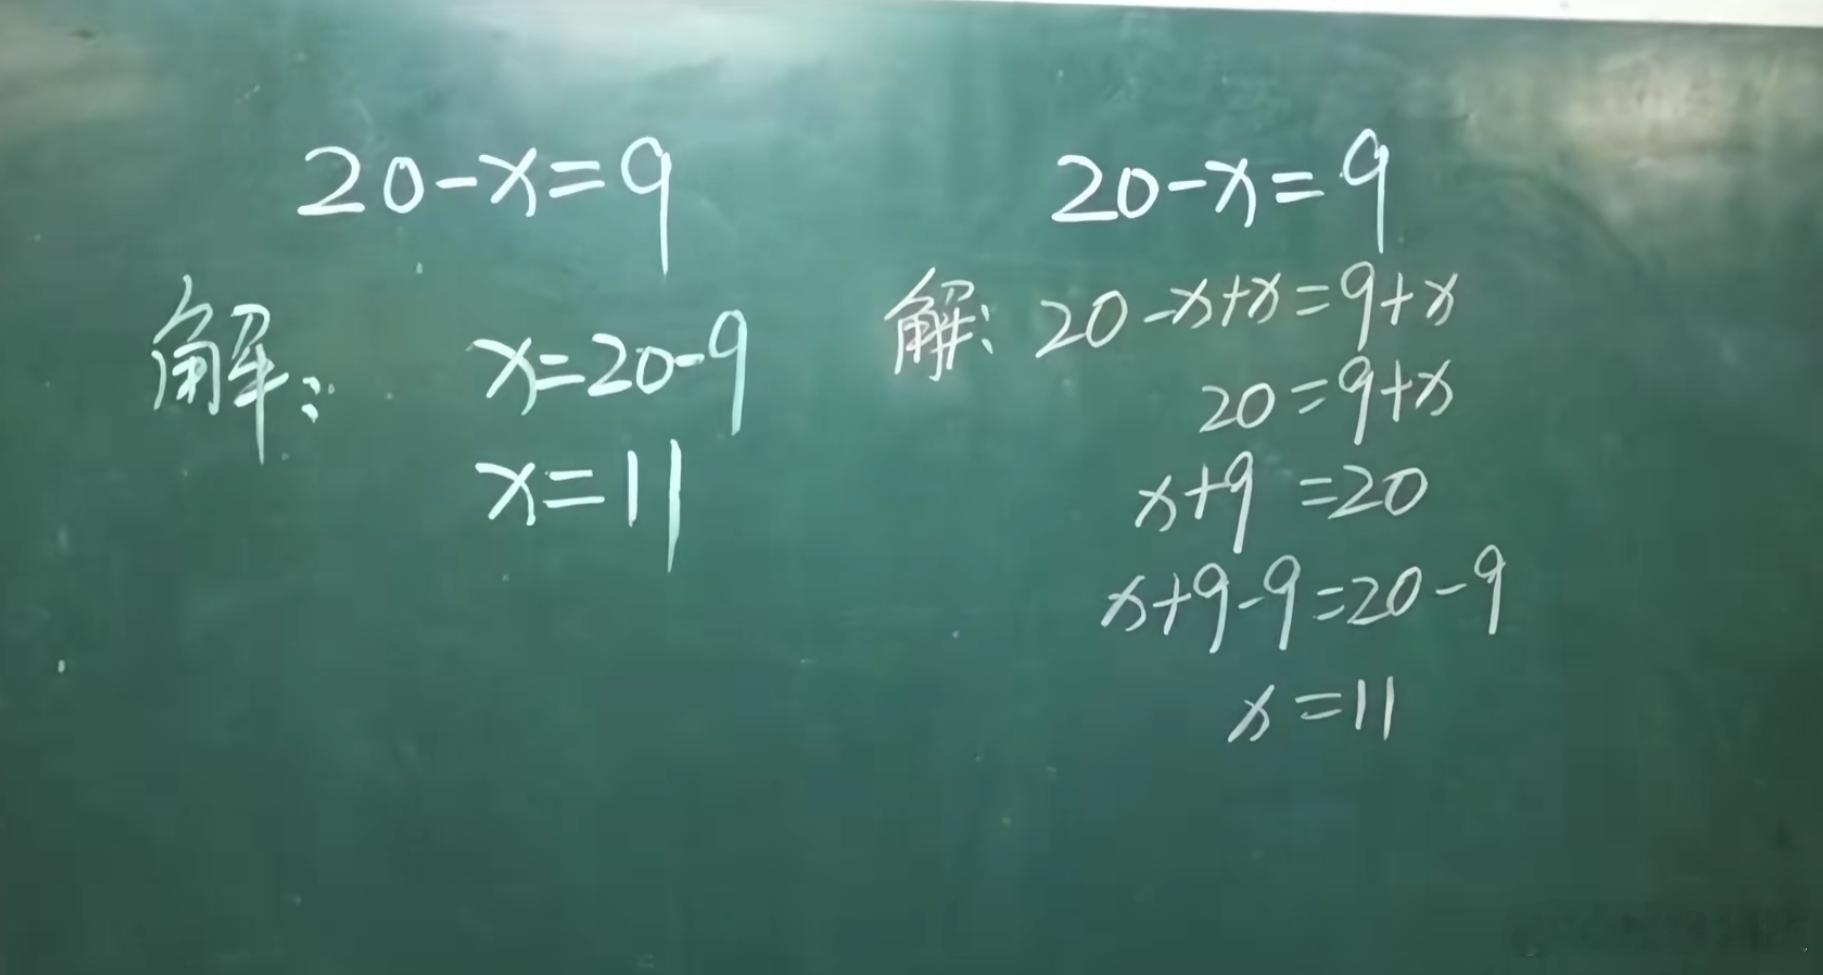 20-x=9
解: x=20-9
x=11
20-x=9
解: 20-x+x=9+x
20=9+x
x+9=20
x+9-9=20-9
x=11